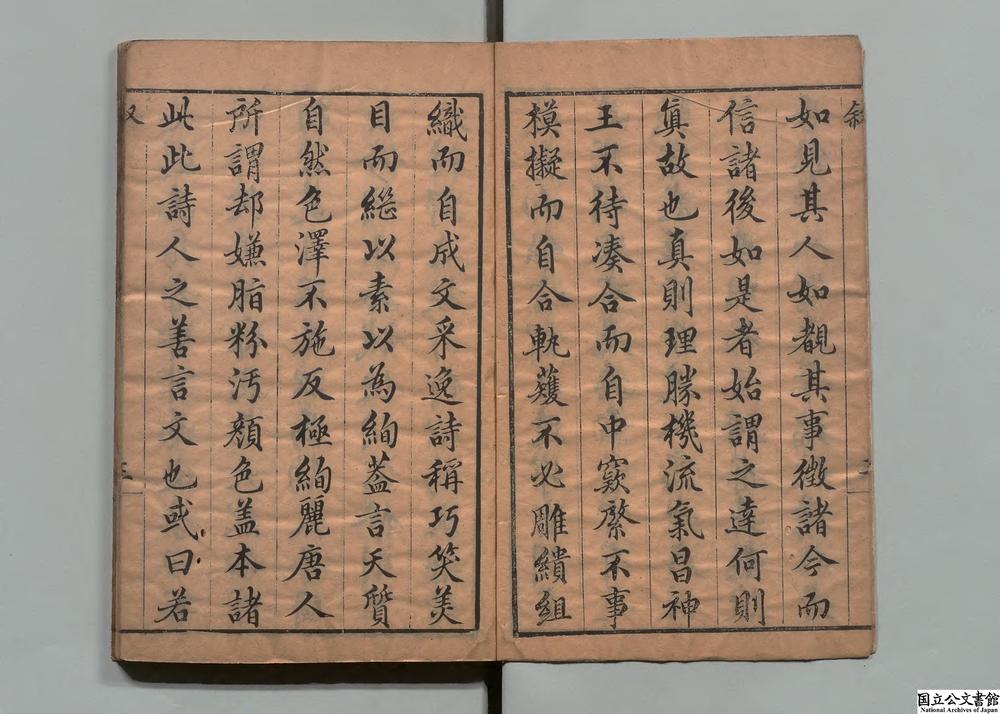 如見其人如覩其事徵諸今而
信諸後如是者始謂之達何則
真故也真則理勝機流氣昌神
王不待湊合而自中窾綮不事
模擬而自合軌䕶不必雕繢組
織而自成文采逸詩稱巧笑美
目而繼以素以為絢葢言天質
自然色澤不施反極絢麗唐人
所謂却嫌脂粉汚顏色盖本諸
此此詩人之善言文也或曰若
国立公文書館
National Archives of Japan